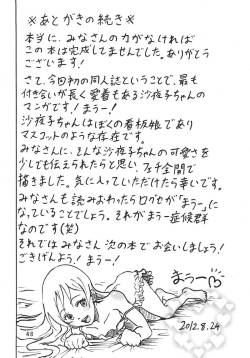 ※あとがきの続き※
本当に、みなさんの力がなければ
この本は完成してませんでした。ありがとう
ございます!
さて、今回初の同人誌ということで、最も
付き合いが長く愛着もある沙夜子ちゃんの
マンガです!まうー!
沙夜子ちゃんはぼくの看板娘であり
マスコットのような存在です。
みなさんに、そんな沙夜子ちゃんの可愛さを
少しでも伝えられたらと思い、フェチ全開で
描きました。気に入っていただけたら幸いです。
みなさんも読みおわったらログセが「まうー」に
なっていることでしょう。それがまうー症候群
なのです(笑)
それではみなさん次の本でお会いしましょう!
ごきげんよう!まうー!
まうー
2012.8.24
48